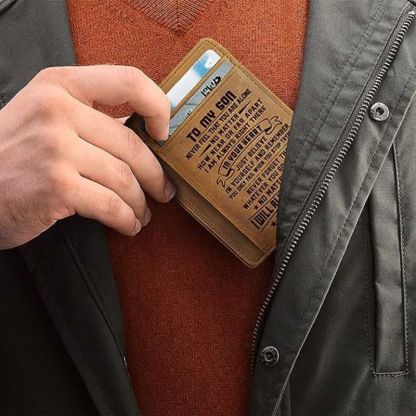 TO MY SON
NEVER FEEL THAT YOU ARE ALONE
NO MATTER
HOW NEAR OR FAR APART
I AM ALWAYS RIGHT THERE
IN YOUR HEART
JUST BELIEVE
IN YOURSELF AND REMEMBER
NEVER
NO MATTER
I WILL